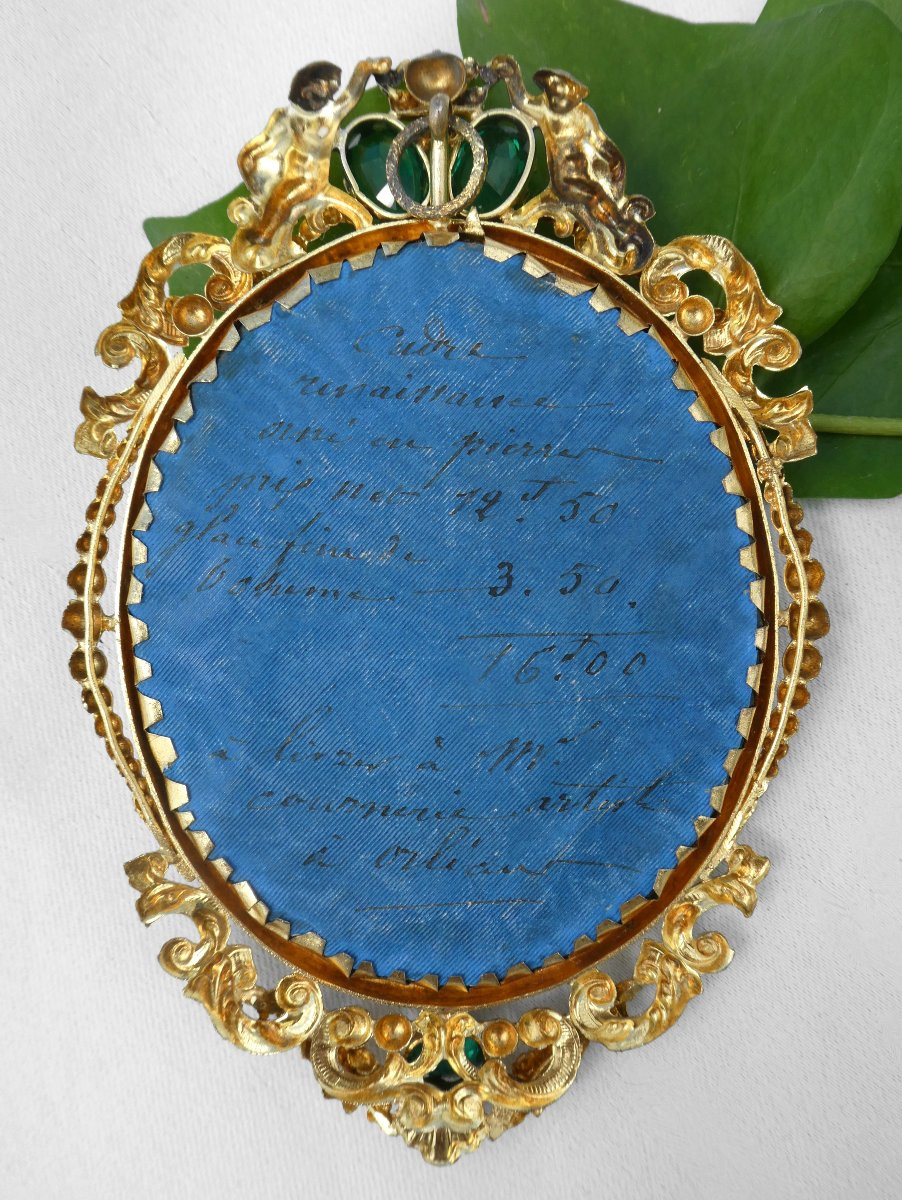 Cadre
renaissance
orné en pierres
prix net 12.f 50
glace fine de
boheme. 3. 50.
16.f 00
à livrer à Mr.
cournerie artiste
à orléans